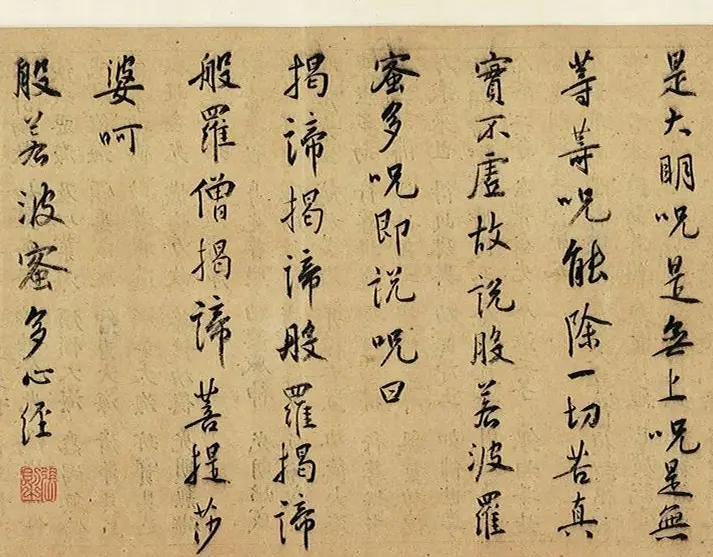 是大明呪是無上呪是無
等等呪能除一切苦真
實不虛故說般若波羅
蜜多呪即說呪曰
揭諦揭諦般羅揭諦
般羅僧揭諦菩提莎
婆呵
般若波蜜多心經